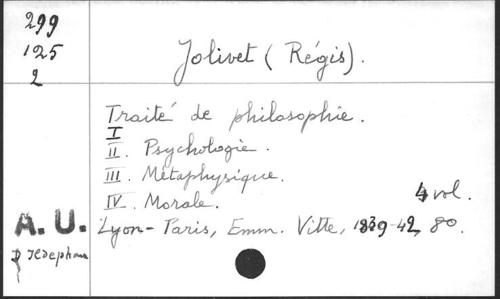 299
125
2
Jolivet (Régis).
Traité de philosophie.
I
II. Psychologie.
III. Métaphysique.
IV. Morale.
4 vol.
A. U.
Lyon-Paris, Emm. Vitte, 1939-42, 80.